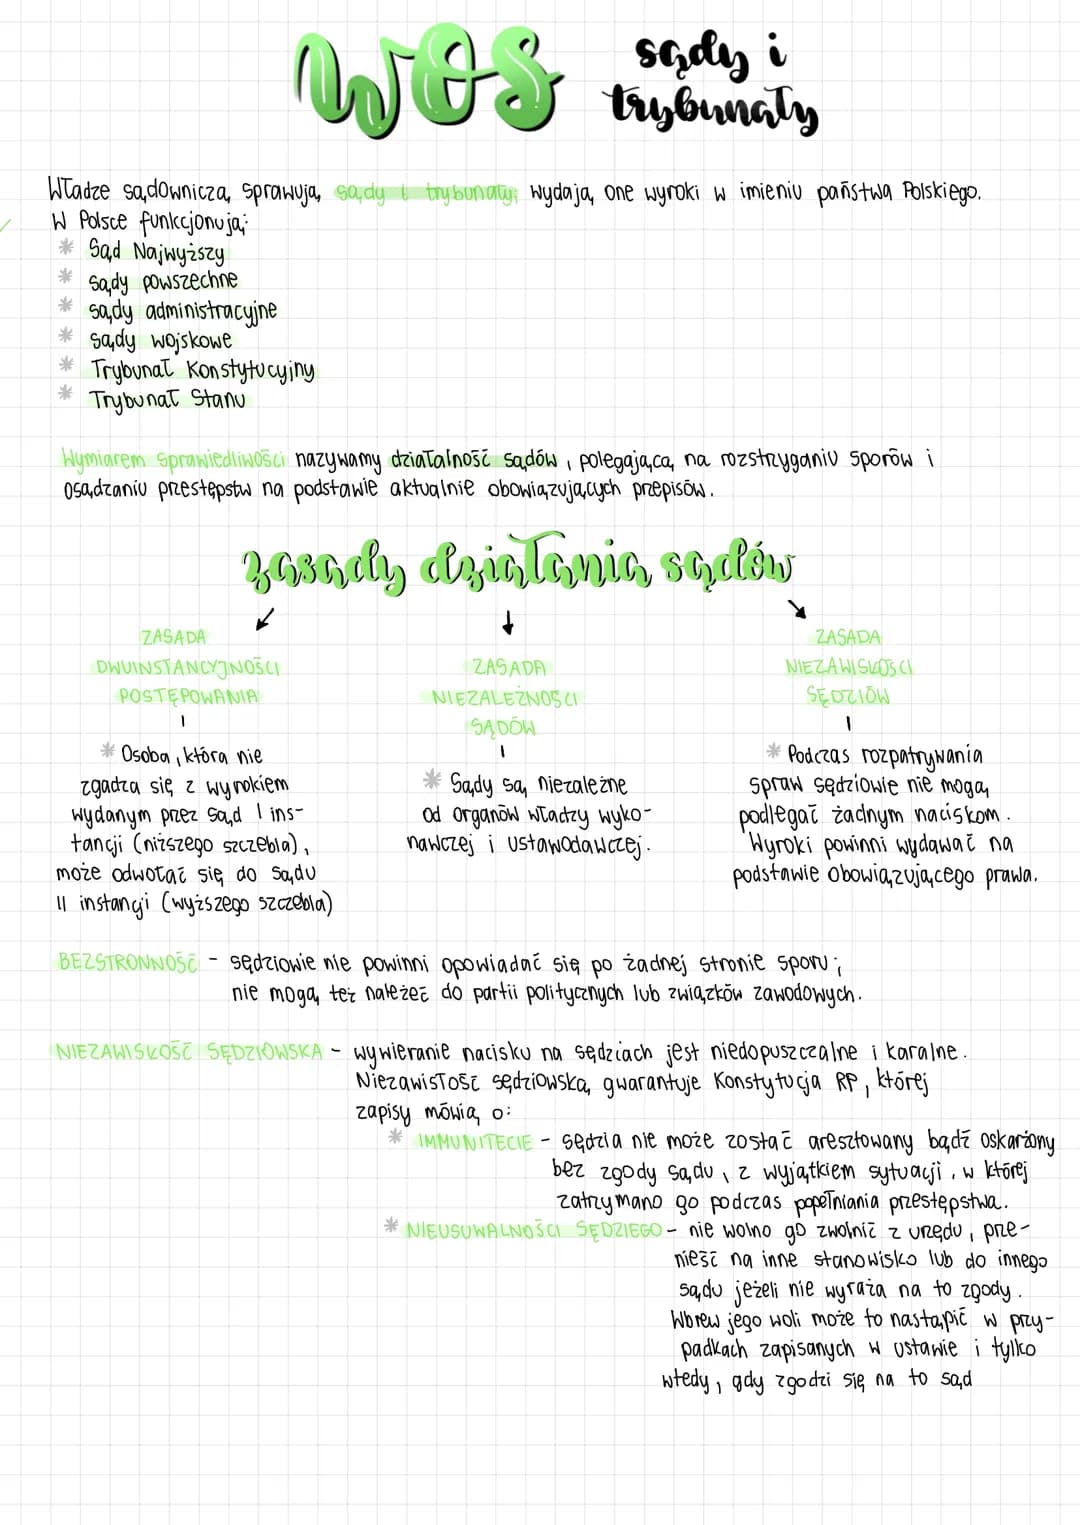 WOS sądy i
trybunały
Władzę sądowniczą sprawują sądy i trybunały; wydają one wyroki w imieniu państwa Polskiego.
W Polsce funkcjonują:
* Sąd Najwyższy
* sądy powszechne
* sądy administracyjne
* sądy wojskowe
* Trybunał Konstytucyjny
* Trybunał Stanu
Wymiarem sprawiedliwości nazywamy działalność sądów, polegającą na rozstrzyganiu sporów i
osądzaniu przestępstw na podstawie aktualnie obowiązujących przepisów.
zasady działania sądów
ZASADA
DWUINSTANCYJNOŚCI
POSTĘPOWANIA
* Osoba, która nie
zgadza się z wyrokiem
wydanym przez sąd I ins-
tancji (niższego szczebla),
może odwołać się do sądu
II instancji (wyższego szczebla)
ZASADA
NIEZALEŻNOŚCI
SĄDÓW
* Sądy są niezależne
od organów władzy wyko-
nawczej i ustawodawczej.
ZASADA
NIEZAWISŁOŚCI
SĘDZIÓW
* Podczas rozpatrywania
spraw sędziowie nie mogą
podlegać żadnym naciskom.
Wyroki powinni wydawać na
podstawie obowiązującego prawa.
BEZSTRONNOŚĆ - sędziowie nie powinni opowiadać się po żadnej stronie sporu;
nie mogą też należeć do partii politycznych lub związków zawodowych.
NIEZAWISŁOŚĆ SĘDZIOWSKA - wywieranie nacisku na sędziach jest niedopuszczalne i karalne.
Niezawisłość sędziowską gwarantuje Konstytucja RP, której
zapisy mówią o:
* IMMUNITECIE - sędzia nie może zostać aresztowany bądź oskarżony
bez zgody sądu, z wyjątkiem sytuacji, w której
zatrzymano go podczas popełniania przestępstwa.
* NIEUSUWALNOŚCI SĘDZIEGO - nie wolno go zwolnić z urzędu, prze-
nieść na inne stanowisko lub do innego
sądu jeżeli nie wyraża na to zgody.
Wbrew jego woli może to nastąpić w przy-
padkach zapisanych w ustawie i tylko
wtedy, gdy zgodzi się na to sąd